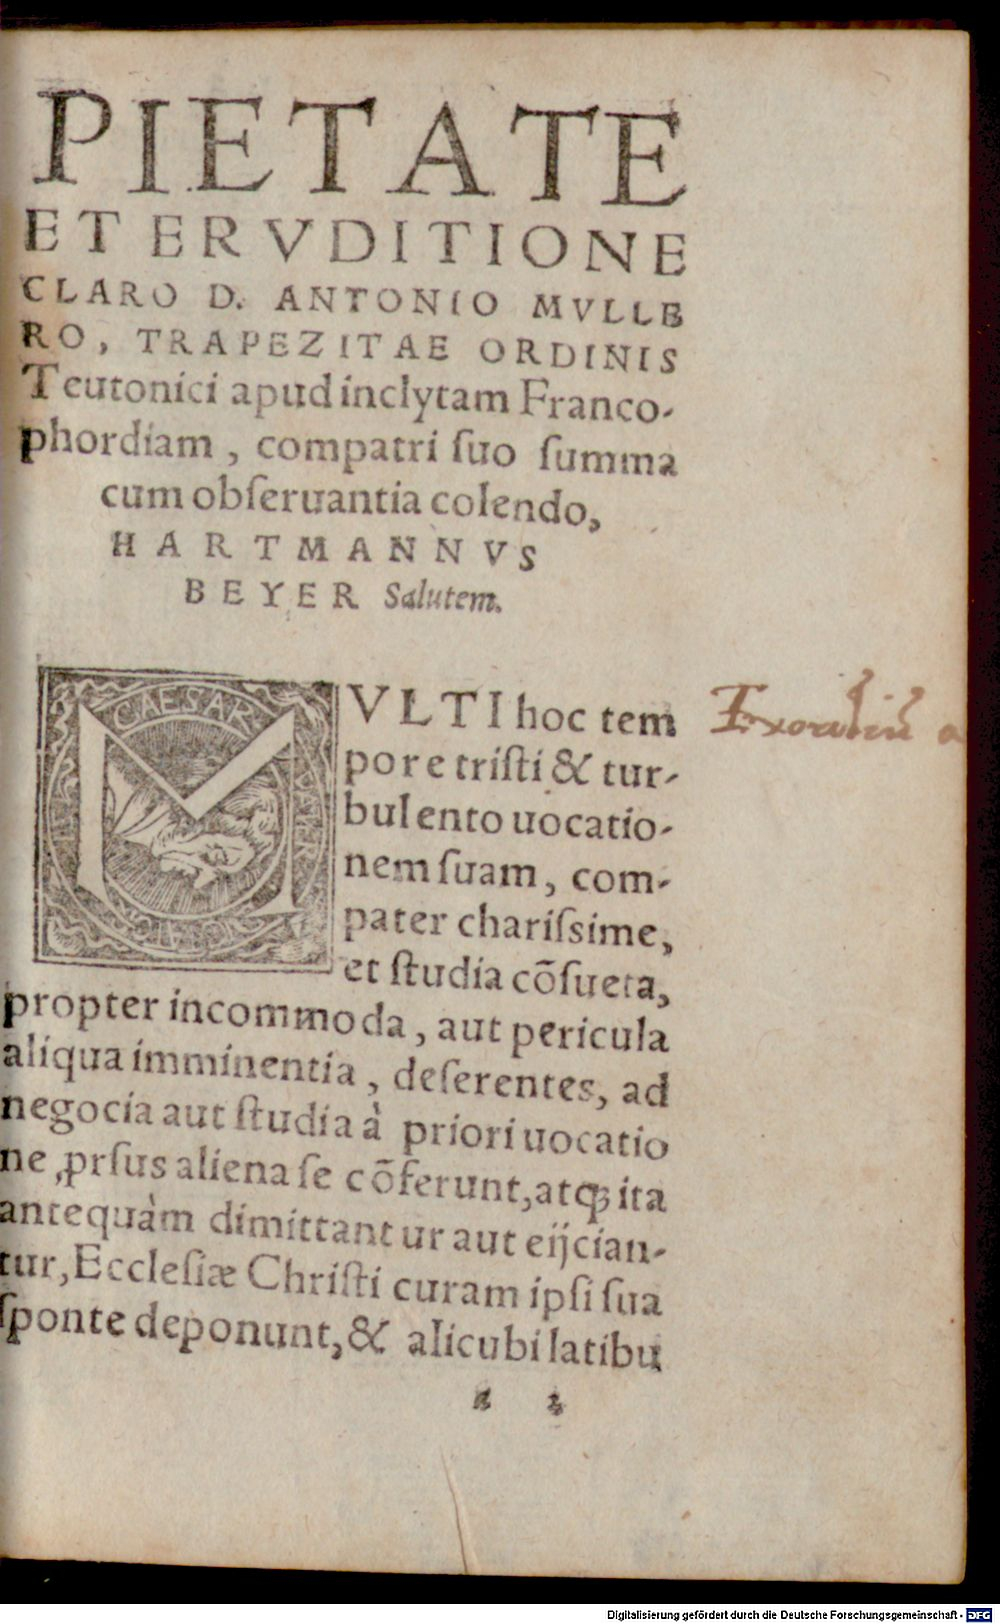 PIETATE
ET ERVDITIONE
CLARO D. ANTONIO MVLLE
RO, TRAPEZITAE ORDINIS
Teutonici apud inclytam Franco-
phordiam, compatri ſuo ſumma
cum obſeruantia colendo,
HARTMANNVS
BEYER Salutem.
CAESAR
MVLTI hoc tem
pore triſti & tur-
bulento uocatio-
nem ſuam, com-
pater chariſsime,
et ſtudia cõſueta,
propter incommoda, aut pericula
aliqua imminentia, deſerentes, ad
negocia aut ſtudia à priori uocatio
ne ꝓrſus aliena ſe cõferunt, atqꝫ ita
antequàm dimittantur aut eijcian-
tur, Eccleſiæ Chriſti curam ipſi ſua
ſponte deponunt, & alicubi latibu
a 2
Exordiũ a
Digitalisierung gefördert durch die Deutsche Forschungsgemeinschaft - DFG